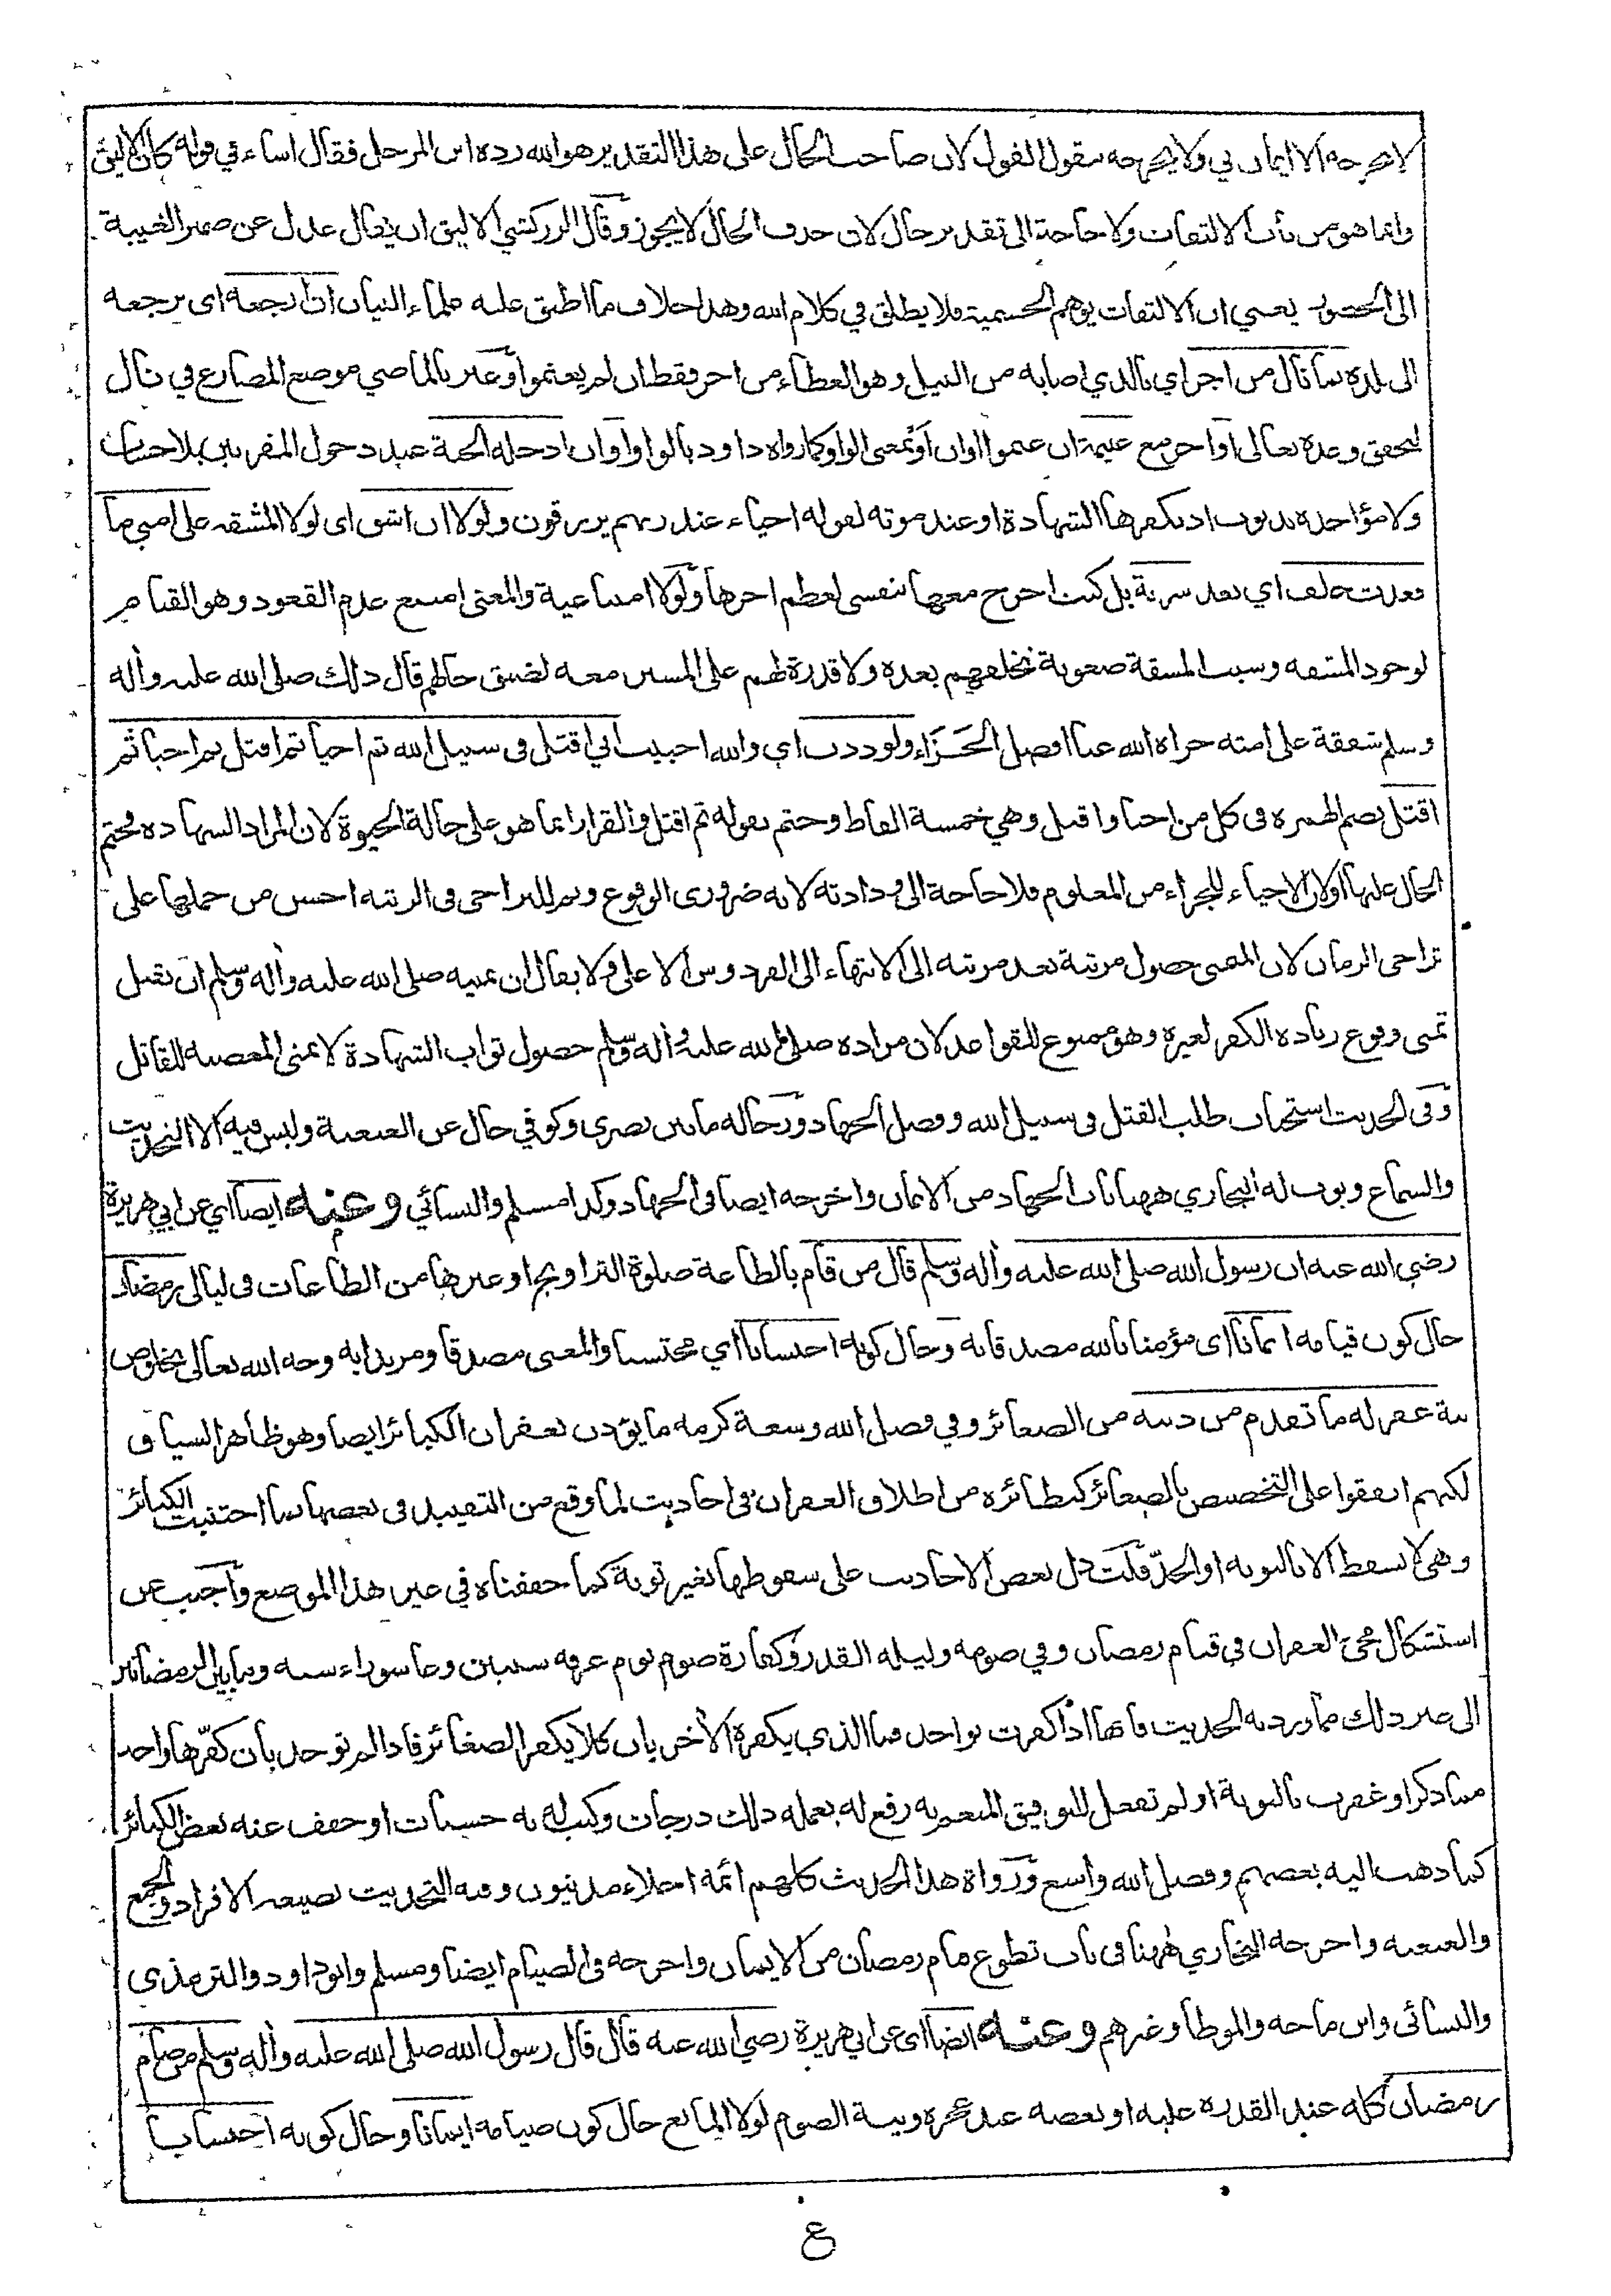 لا يخرجه الا ايمان بي ولا يخرجه مقول القول لان صاحب الحال على هذا التقدير هو الله رده ابن المرحل فقال اساء في قوله كان الاليق
وانما هو من باب الالتفات ولا حاجة الى تقدير حال لان حذف الحال لا يجوز وقال الزركشي الاليق ان يقال عدل عن ضمير الغيبة
الى الحضور يعني ان الالتفات يوهم الجسمية فلا يطلق في كلام الله وهذا خلاف ما اطبق عليه علماء البيان ان ارجعه اي يرجعه
الى بلده بما نال من اجر اي بالذي اصابه من النيل وهو العطاء من اجر فقط ان لم يغنموا وعبر بالماضي موضع المضارع في نال
لتحقق وعده تعالى او اجر مع غنيمة ان غنموا او ان او بمعنى الواو كما رواه داود بالواو او ان ادخله الجنة عند دخول المقربين بلا حساب
ولا مؤاخذة بذنوب اذ تكفرها الشهادة او عند موته لقوله احياء عند ربهم يرزقون ولولا ان اشق اي لولا المشقة على امتي ما
قعدت خلف اي بعد سرية بل كنت اخرج معها بنفسي لعظم اجرها ولولا امتناعية والمعنى امتنع عدم القعود وهو القيام
لوجود المشقة وسبب المشقة صعوبة تخلفهم بعده ولا قدرة لهم على المسير معه لضيق حالهم قال ذلك صلى الله عليه وآله
وسلم شفقة على امته جزاه الله عنا افضل الجَزَاء ولوددت اي والله احببت اني اقتل في سبيل الله ثم احيا ثم اقتل ثم احيا ثم
اقتل بضم الهمزة في كل من احيا واقتل وهي خمسة الفاظ وختم بقوله ثم اقتل والقرار انما هو على حالة الحيوة لان المراد الشهادة فختم
الحال عليها اولان الاحياء للجزاء من المعلوم فلا حاجة الى ودادته لانه ضروري الوقوع وثم للتراخي في الرتبة احسن من حملها على
تراخي الزمان لان المعنى حصول مرتبة بعد مرتبة الى الانتهاء الى الفردوس الاعلى ولا يقال ان تمنيه صلى الله عليه وآله وسلم ان يقتل
تمنى وقوع زيادة الكفر لغيره وهو ممنوع للقواعد لان مراده صلى الله عليه وآله وسلم حصول ثواب الشهادة لا تمنى المعصية للقاتل
وفي الحديث استحباب طلب القتل في سبيل الله وفضل الجهاد ورجاله ما بين بصري وكوفي خال عن العنعنة وليس فيه الا التحديث
والسماع وبوب له البخاري ههنا باب الجهاد من الايمان واخرجه ايضا في الجهاد وكذا مسلم والنسائي وعنه ايضا اي عن ابي هريرة
رضي الله عنه ان رسول الله صلى الله عليه وآله وسلم قال من قام بالطاعة صلوة التراويح او غيرها من الطاعات في ليالي رمضان
حال كون قيامه ايمانا اي مؤمنا بالله مصدقا به وحال كونه احتسابا اي محتسبا والمعنى مصدقا ومريدا به وجه الله تعالى بخلوص
نية غفر له ما تقدم من ذنبه من الصغائر وفي فضل الله وسعة كرمه ما يؤذن بغفران الكبائر ايضا وهو ظاهر السياق
لكنهم اتفقوا على التخصيص بالصغائر كنظائره من اطلاق الغفران في احاديث لما وقع من التقييد في بعضها بما اجتنبت الكبائر
وهي لا تسقط الا بالتوبة او الحدّ قلت دل بعض الاحاديث على سقوطها بغير توبة كما حققناه في غير هذا الموضع واجيب عن
استشكال مجئ الغفران في قيام رمضان وفي صومه وليلة القدر وكفارة صوم يوم عرفة سنتين وعاشوراء سنة وما بين الرمضانين
الى غير ذلك مما ورد به الحديث فانها اذا كفرت بواحد فما الذي يكفره الآخر بان كلا يكفر الصغائر فاذا لم توجد بان كفّرها واحد
مما ذكر او غفرت بالتوبة او لم تفعل للتوفيق المنعم به رفع له بعمله ذلك درجات وكتب له به حسنات او خفف عنه بعض الكبائر
كما ذهب اليه بعضهم وفضل الله واسع ورواة هذا الحديث كلهم ائمة اجلاء مدنيون وفيه التحديث بصيغة الافراد والجمع
والعنعنة واخرجه البخاري ههنا في باب تطوع قيام رمضان من الايمان واخرجه في الصيام ايضا ومسلم وابو داود والترمذي
والنسائي وابن ماجه والموطأ وغيرهم وعنه ايضا اي عن ابي هريرة رضي الله عنه قال قال رسول الله صلى الله عليه وآله وسلم من صام
رمضان كله عند القدرة عليه او بعضه عند عجزه ونية الصوم لولا المانع حال كون صيامه ايمانا وحال كونه احتسابا
ع